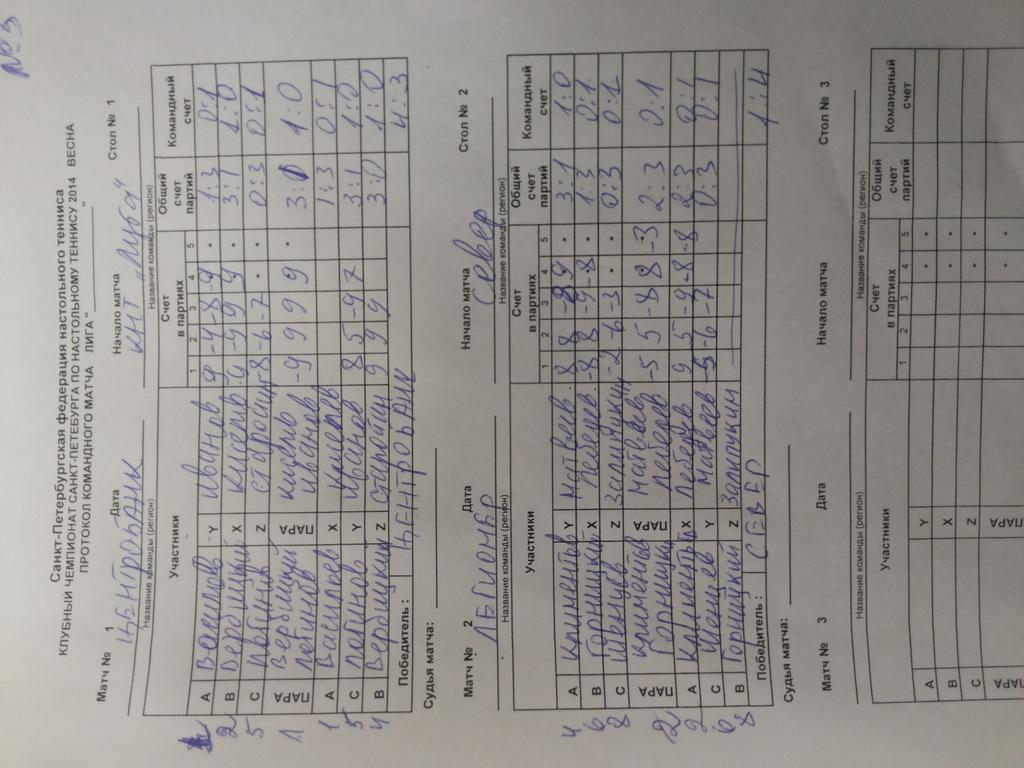 № 3
Санкт-Петербургская федерация настольного тенниса
КЛУБНЫЙ ЧЕМПИОНАТ САНКТ-ПЕТЕБУРГА ПО НАСТОЛЬНОМУ ТЕННИСУ 2014 ВЕСНА
ПРОТОКОЛ КОМАНДНОГО МАТЧА ЛИГА " ________ "
Матч № 1 Дата Начало матча Стол № 1
ЦЕНТРОБАНК КНТ "Луга"
Название команды (регион) Название команды (регион)
Участники Счет в партиях Общий счет партий Командный счет
1 2 3 4 5
A Y Иванов 9 -4 -8 -9 . 1:3 0:1
2 B X 9 -9 9 9 3:1 1:0
5 C Z 8 -6 -7 . . 0:3 0:1
1 ПАРА Вербицкий ПАРА Иванов -9 9 9 9 . 3:0 1:0
1 A Васильев X 1:3 0:1
5 C Логинов Y Иванов 8 5 -9 7 3:1 1:0
4 B Вербицкий Z Старостин 9 9 9 3:0 1:0
Победитель: ЦЕНТРОБАНК 4:3
Судья матча:
Матч № 2 Дата Начало матча Стол № 2
ЛЕГИОНЕР Север
Название команды (регион) Название команды (регион)
Участники Счет в партиях Общий счет партий Командный счет
1 2 3 4 5
4 A Климентов Y Матвеев 8 8 -8 9 . 3:1 1:0
6 B Горницкий X Лебедев -8 8 -9 -8 . 1:3 0:1
8 C Z -2 -6 -3 . . 0:3 0:1
2 ПАРА Климентов Горницкий ПАРА Матвеев Лебедев -5 5 -8 8 -3 2:3 0:1
2 A Климентов X Лебедев 9 5 -9 -8 -8 2:3 0:1
6 C Y Матвеев -5 -6 -7 0:3 0:1
8 B Горницкий Z
Победитель: СЕВЕР 1:4
Судья матча:
Матч № 3 Дата Начало матча Стол № 3
Название команды (регион) Название команды (регион)
Участники Счет в партиях Общий счет партий Командный счет
1 2 3 4 5
A Y . .
B X . .
C Z . .
ПАРА ПАРА . .